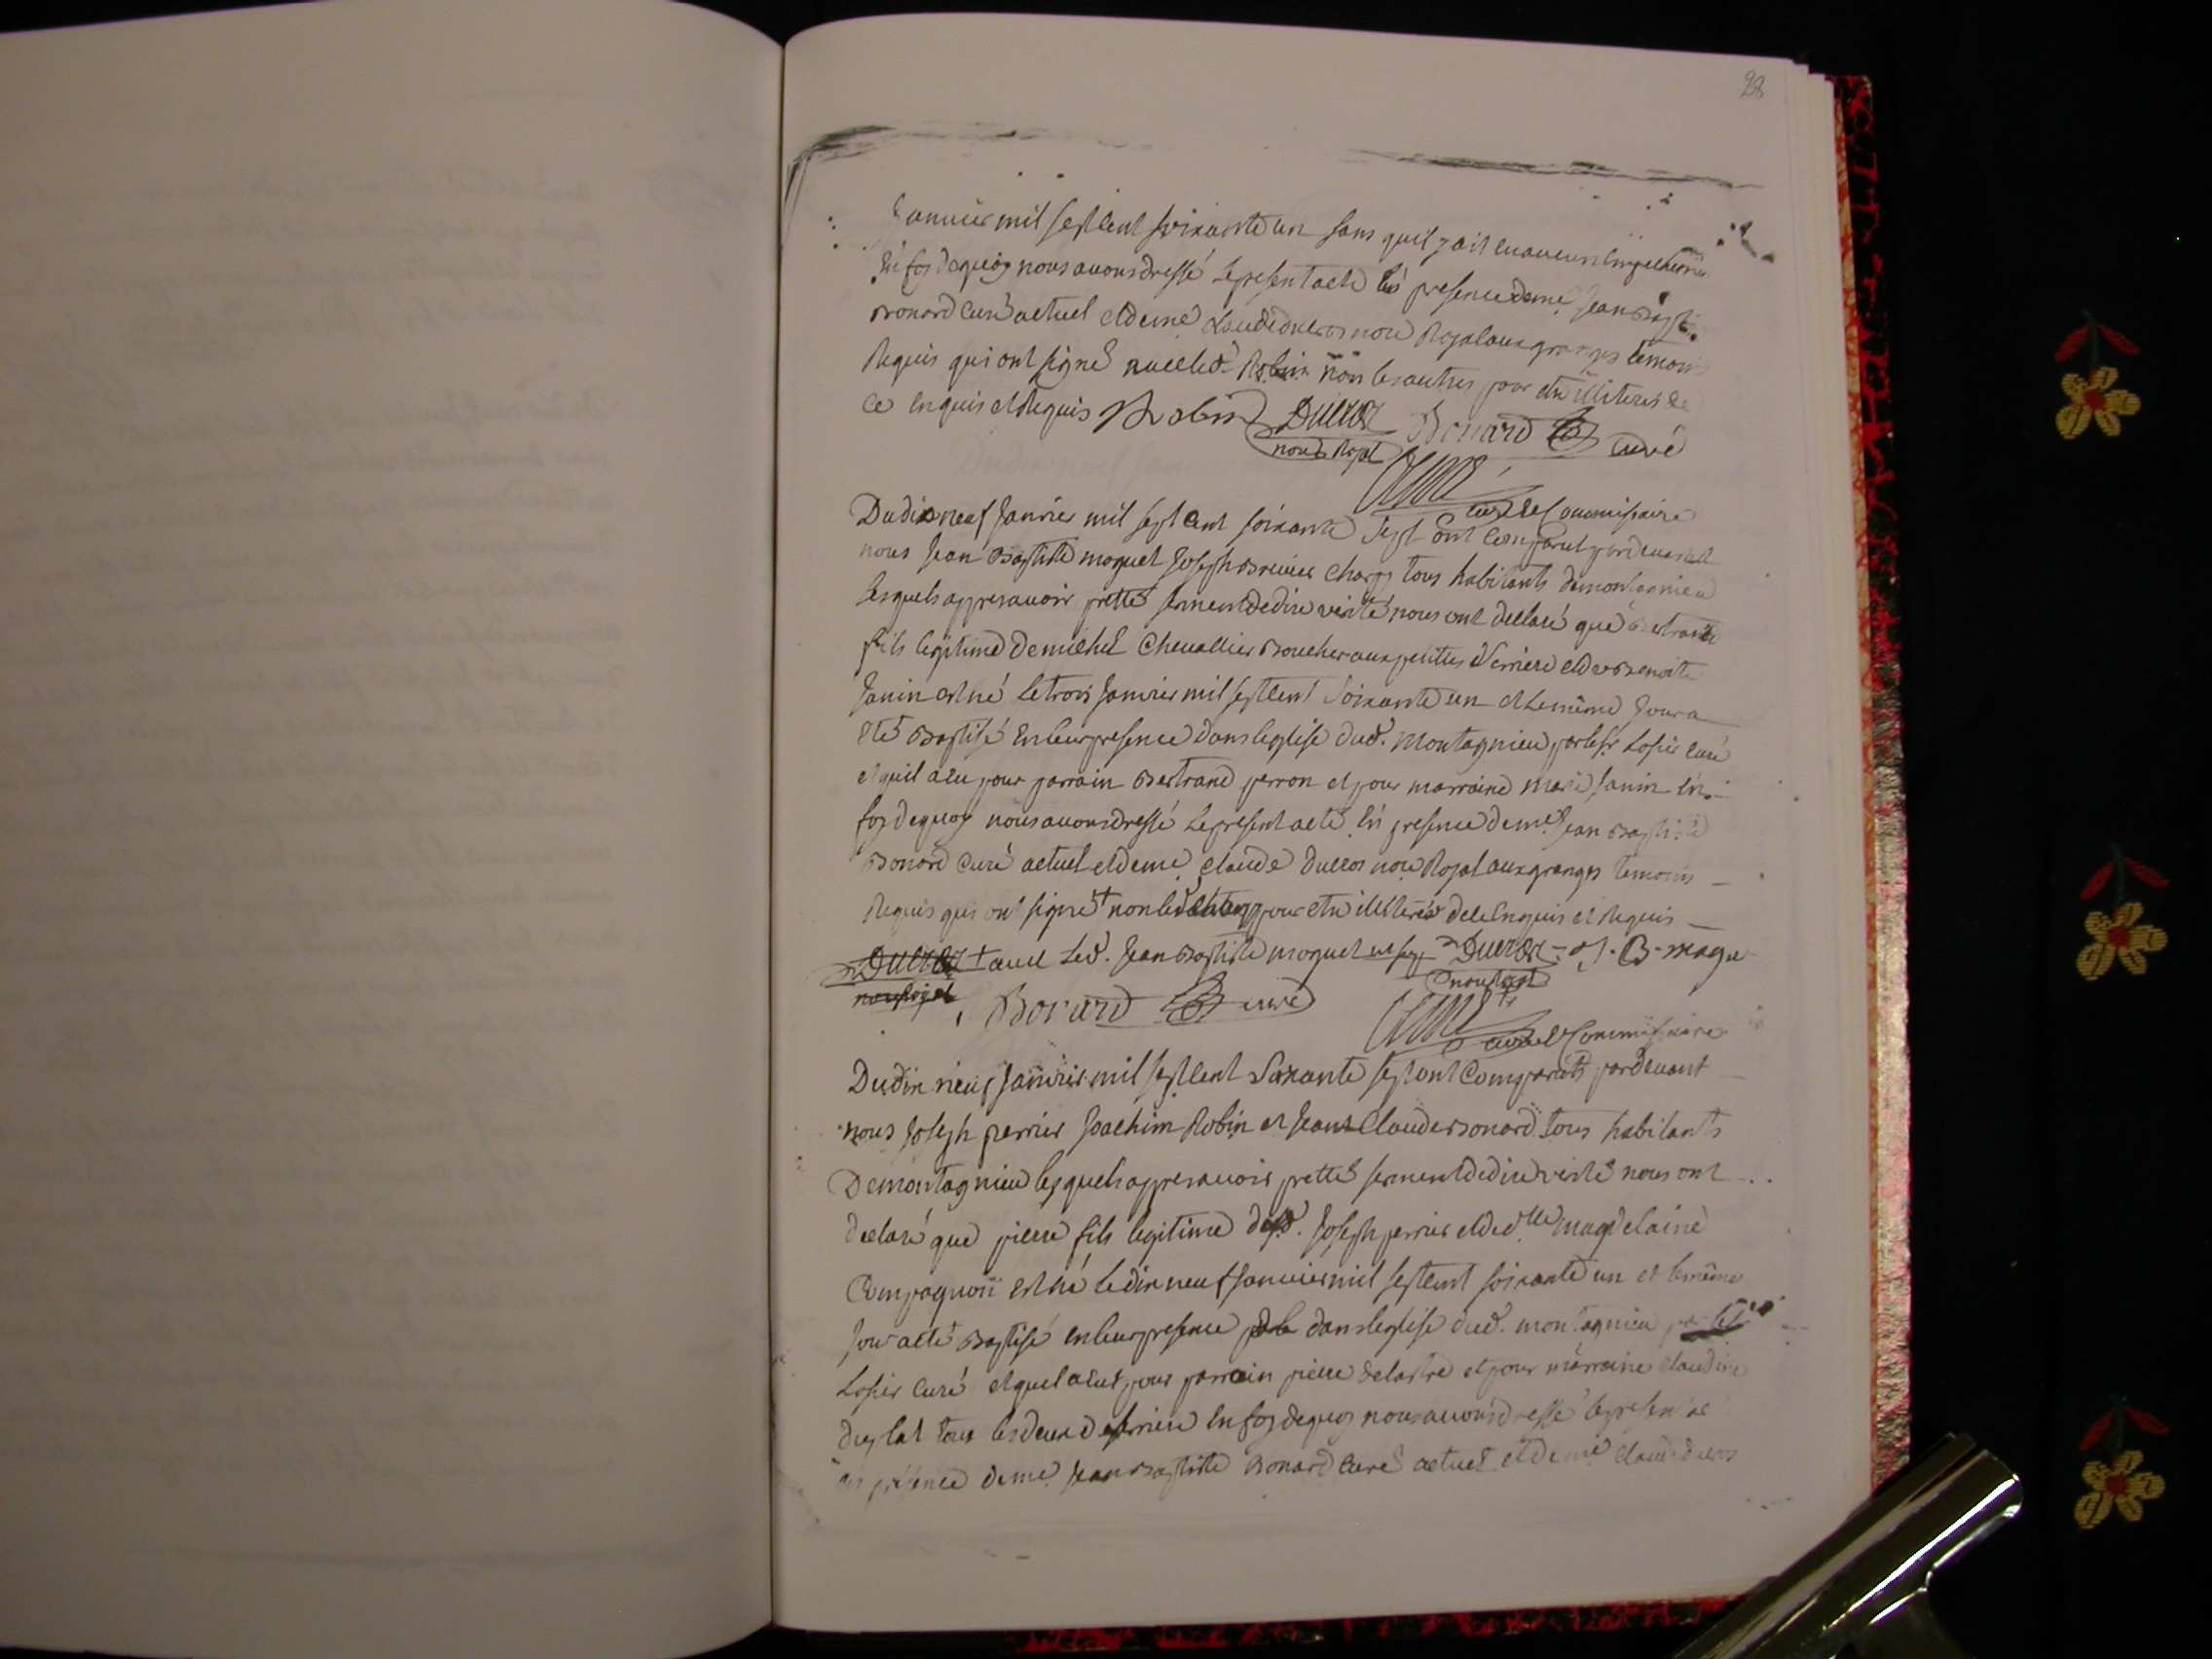 28
Janvier mil sept cent soixante un sans quil y ait eu aucun
En foy de quoy nous avons dressé le present acte En presence de me Jean Bapt
Bonard curé actuel et de me Claude ducros nore Royal aux granges temoins
Requis qui ont signé avec led. Robin non les autres pour etre illiteres de
ce enquis et Requis Robin Ducros Bonard curé
nore Royal
curé et Commissaire
Du dix neuf Janvier mil sept cent soixante sept ont comparut pardevant
nous Jean Baptiste moquet Joseph tous habitants de montagnieu
lesquels appres avoir pretté serment de dire verité nous ont declaré que Bertrand
fils legitime de michel Chevallier aux petites et de Benoite
Janin est né le trois Janvier mil sept cent soixante un et le même Jour a
eté Baptisé en leur presence dans leglise dud. montagnieu par le sr Losier curé
et quil a eu pour parrain Bertrand perron et pour marraine marie Janin En
foy de quoy nous avons dressé le present acte En presence de me Jean Baptiste
Bonard curé actuel et de me Claude Ducros nore Royal aux granges temoins
Requis qui ont signé + non les pour etre illiteres de ce enquis et Requis
Ducros + avec led. Jean Baptiste moquet Ducros J. B. moque
nore Royal nore Royal
Bonard curé
curé et Commissaire
Du dix neuf Janvier mil sept cent Soixante sept ont Comparuts pardevant
nous Joseph perrier Joachim Robin et Jean Claude Bonard tous habitants
De montagnieu lesquels appres avoir pretté serment de dire verité nous ont
declaré que pierre fils legitime dud. Joseph perrier et de dlle magdelaine
Compagnon est né le dix neuf Janvier mil sept cent soixante un et le même
Jour a eté Baptisé en leur presence dans leglise dud. montagnieu par le sr
Losier curé et quel a eut pour parrain pierre delastre et pour marraine claudine
duplat tous les deux En foy de quoy nous avons dressé le present ac
en présence de me Jean Baptiste Bonard curé actuel et de me Claude ducros